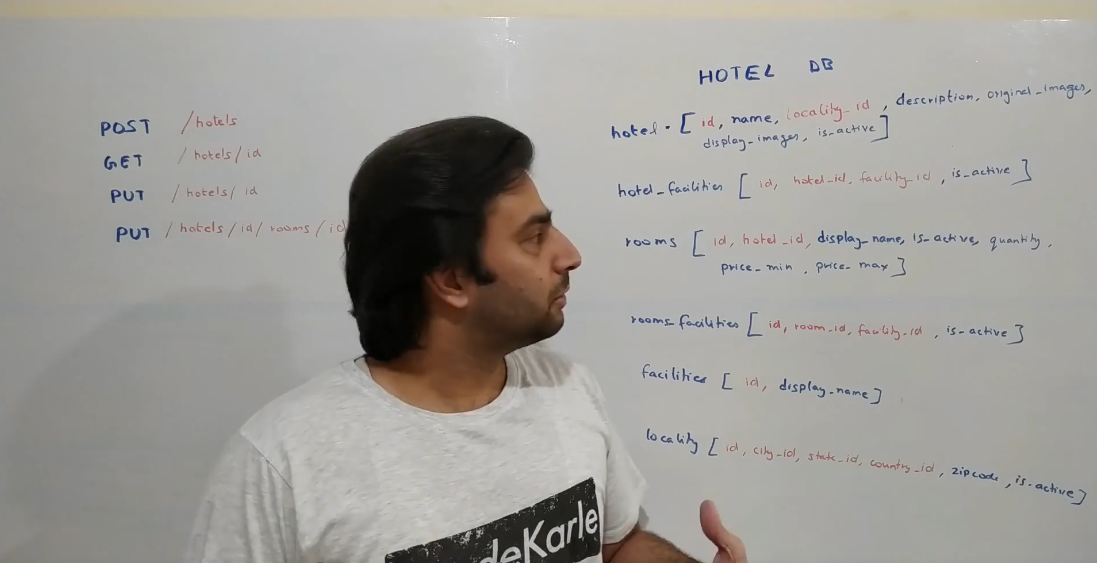 POST /hotels
GET /hotels/id
PUT /hotels/id
PUT /hotels/id/rooms/id
HOTEL DB
hotel - [id, name, locality_id, description, original_images,
display_images, is_active]
hotel_facilities [id, hotel_id, facility_id, is_active]
rooms [id, hotel_id, display_name, is_active, quantity,
price_min, price_max]
rooms_facilities [id, room_id, facility_id, is_active]
facilities [id, display_name]
locality [id, city_id, state_id, country_id, zipcode, is_active]
deKarle